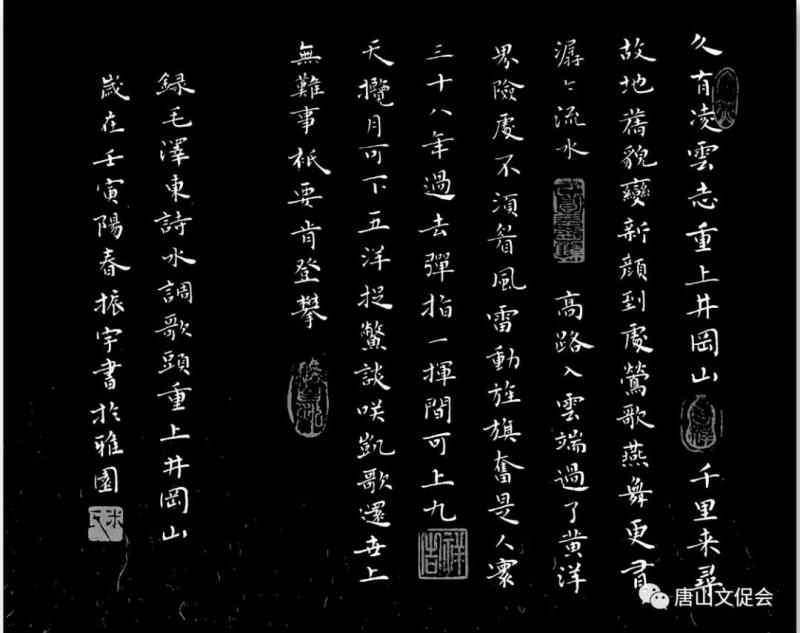 久有凌雲志重上井岡山 千里来尋
故地舊貌變新顔到處鶯歌燕舞更有
潺々流水 高路入雲端過了黄洋
界險處不須看風雷動旌旗奮是人寰
三十八年過去彈指一揮間可上九
祥吉
天攬月可下五洋捉鱉談咲凱歌還世上
無難事祇要肯登攀
録毛澤東詩水調歌頭重上井岡山
歲在壬寅陽春振宇書於雅園
米氏
唐山文促会